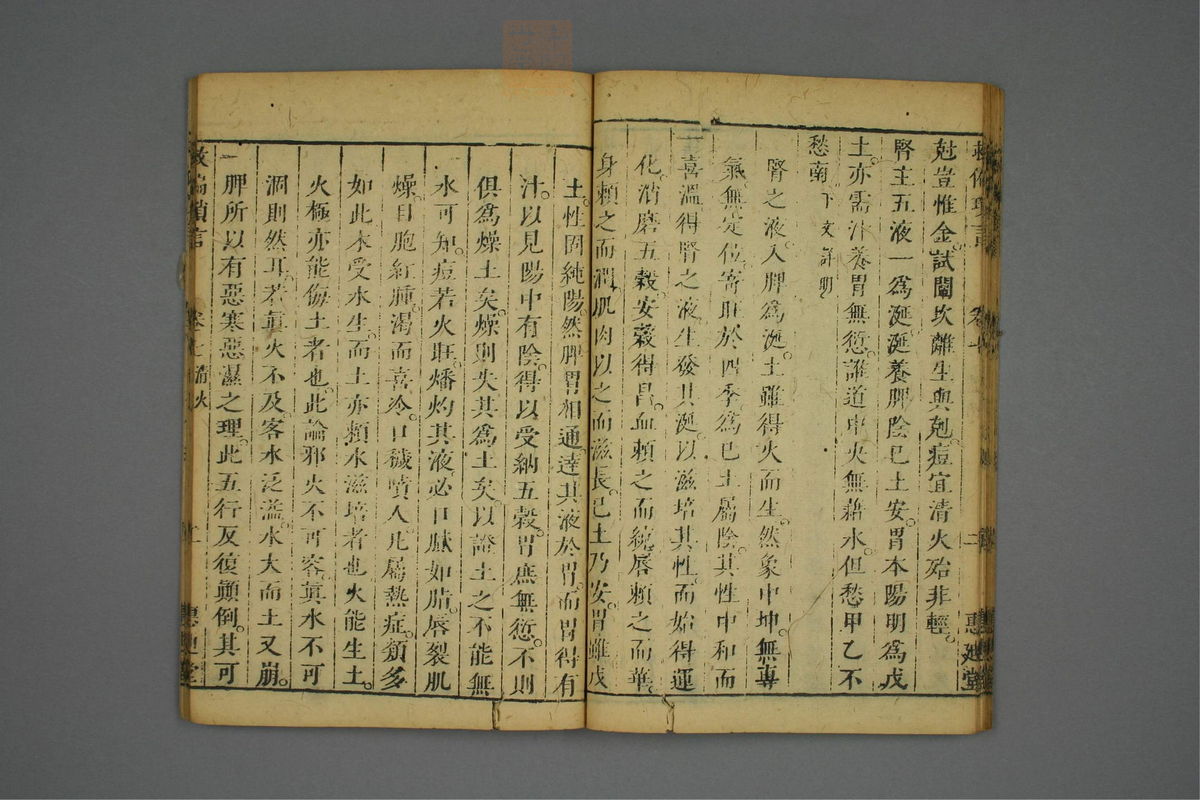 尅豈惟金試闡坎離生與尅痘宜清火殆非輕
腎主五液一爲涎涎養脾陰巳土安胃本陽明爲戊
土亦需汁養胃無愆誰道中央無藉水但愁甲乙不
愁南下文詳明
腎之液入脾爲涎土雖得火而生然象中坤無專
氣無定位寄旺於四季爲巳土屬陰其性中和而
喜溫得腎之液生發其涎以滋培其性而始得運
化消磨五穀安穀得昌血賴之而統唇賴之而華
身賴之而潤肌肉以之而滋長巳土乃安胃雖戊
土性固純陽然脾胃相通達其液於胃而胃得有
汁以見陽中有陰得以受納五穀胃庶無愆不則
俱爲燥土矣燥則失其爲土矣以證土之不能無
水可知痘若火旺燔灼其液必口
如脂唇裂肌
燥目胞紅腫渴而喜冷口穢噴人凡屬熱症頦多
如此木受水生而土亦賴水滋培者也火能生土
火極亦能侮土者也此論邪火不可容真水不可
涸則然耳若真火不及客水泛濫水大而土又崩
一脾所以有惡寒惡濕之理此五行反復顛倒其可
救偏瑣言
卷七清火
二
惠迪堂